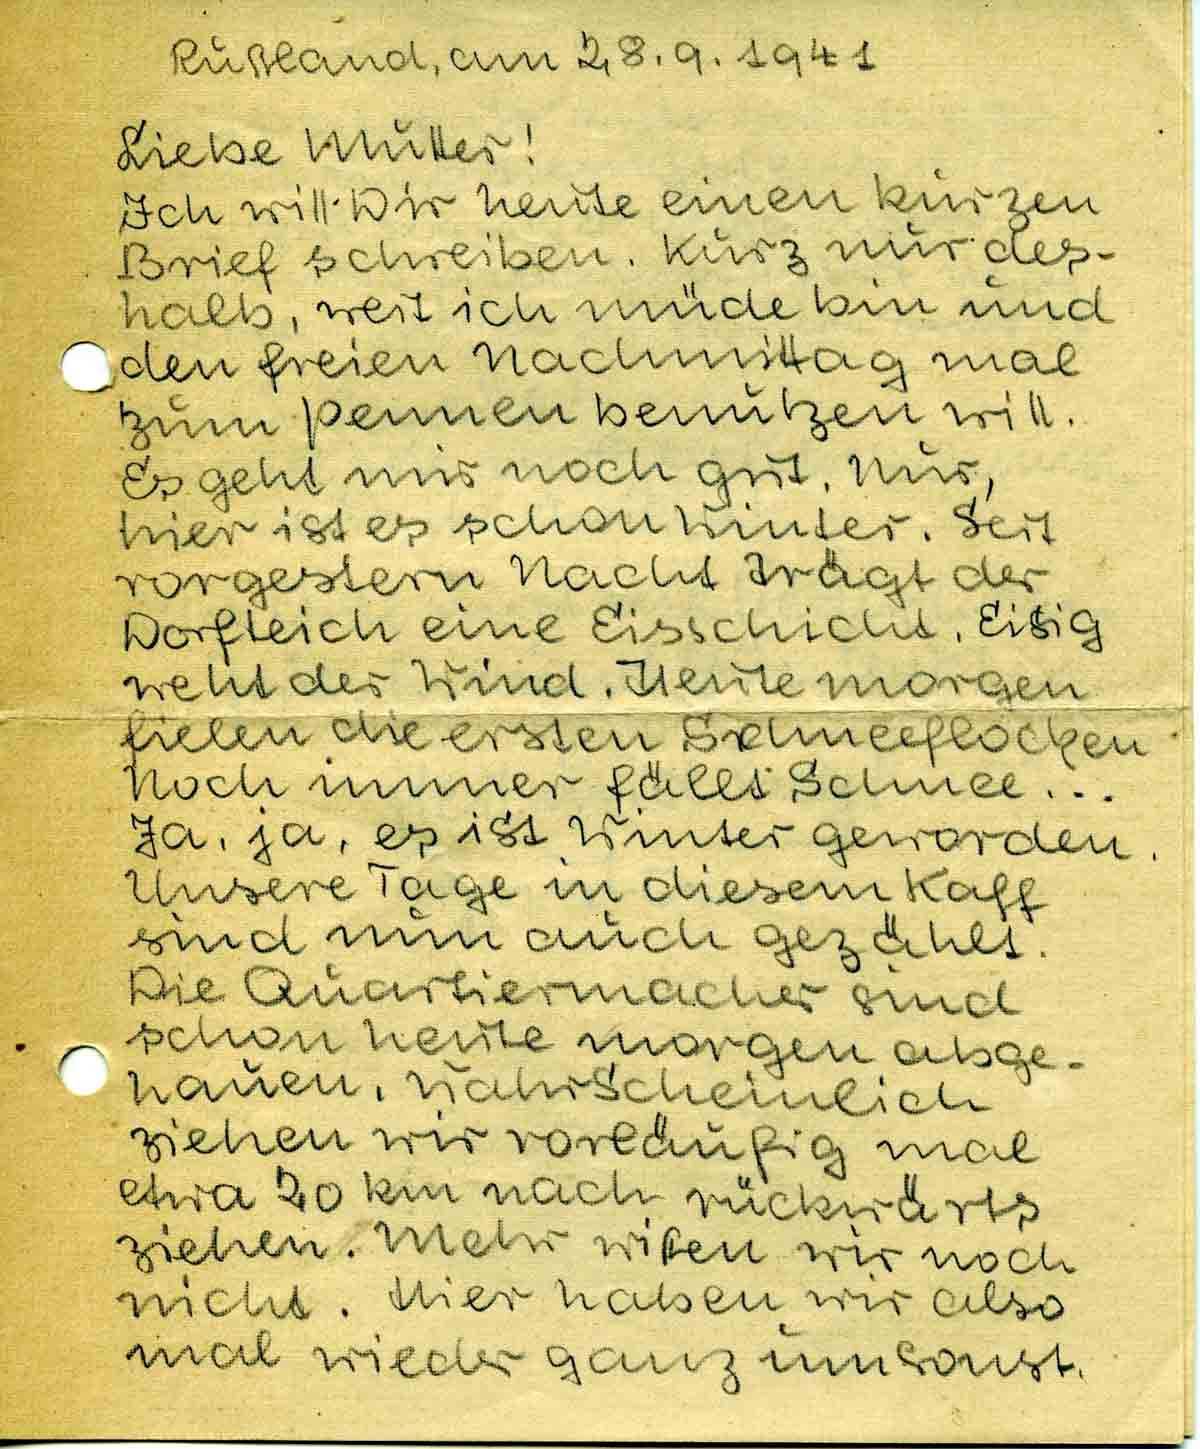 Rußland, am 28.9.1941
Liebe Mutter!
Ich will Dir heute einen kurzen
Brief schreiben. Kurz nur des-
halb, weil ich müde bin und
den freien Nachmittag mal
zum Pennen benutzen will.
Es geht mir noch gut. Nur,
hier ist es schon Winter. Seit
vorgestern Nacht trägt der
Dorfteich eine Eisschicht. Eisig
weht der Wind. Heute morgen
fielen die ersten Schneeflocken
Noch immer fällt Schnee...
Ja, ja, es ist Winter geworden.
Unsere Tage in diesem Kaff
sind nun auch gezählt.
Die Quartiermacher sind
schon heute morgen abge-
hauen. Wahrscheinlich
ziehen wir vorläufig mal
etwa 20 km nach rückwärts
ziehen. Mehr wißen wir noch
nicht. Hier haben wir also
mal wieder ganz umsonst.